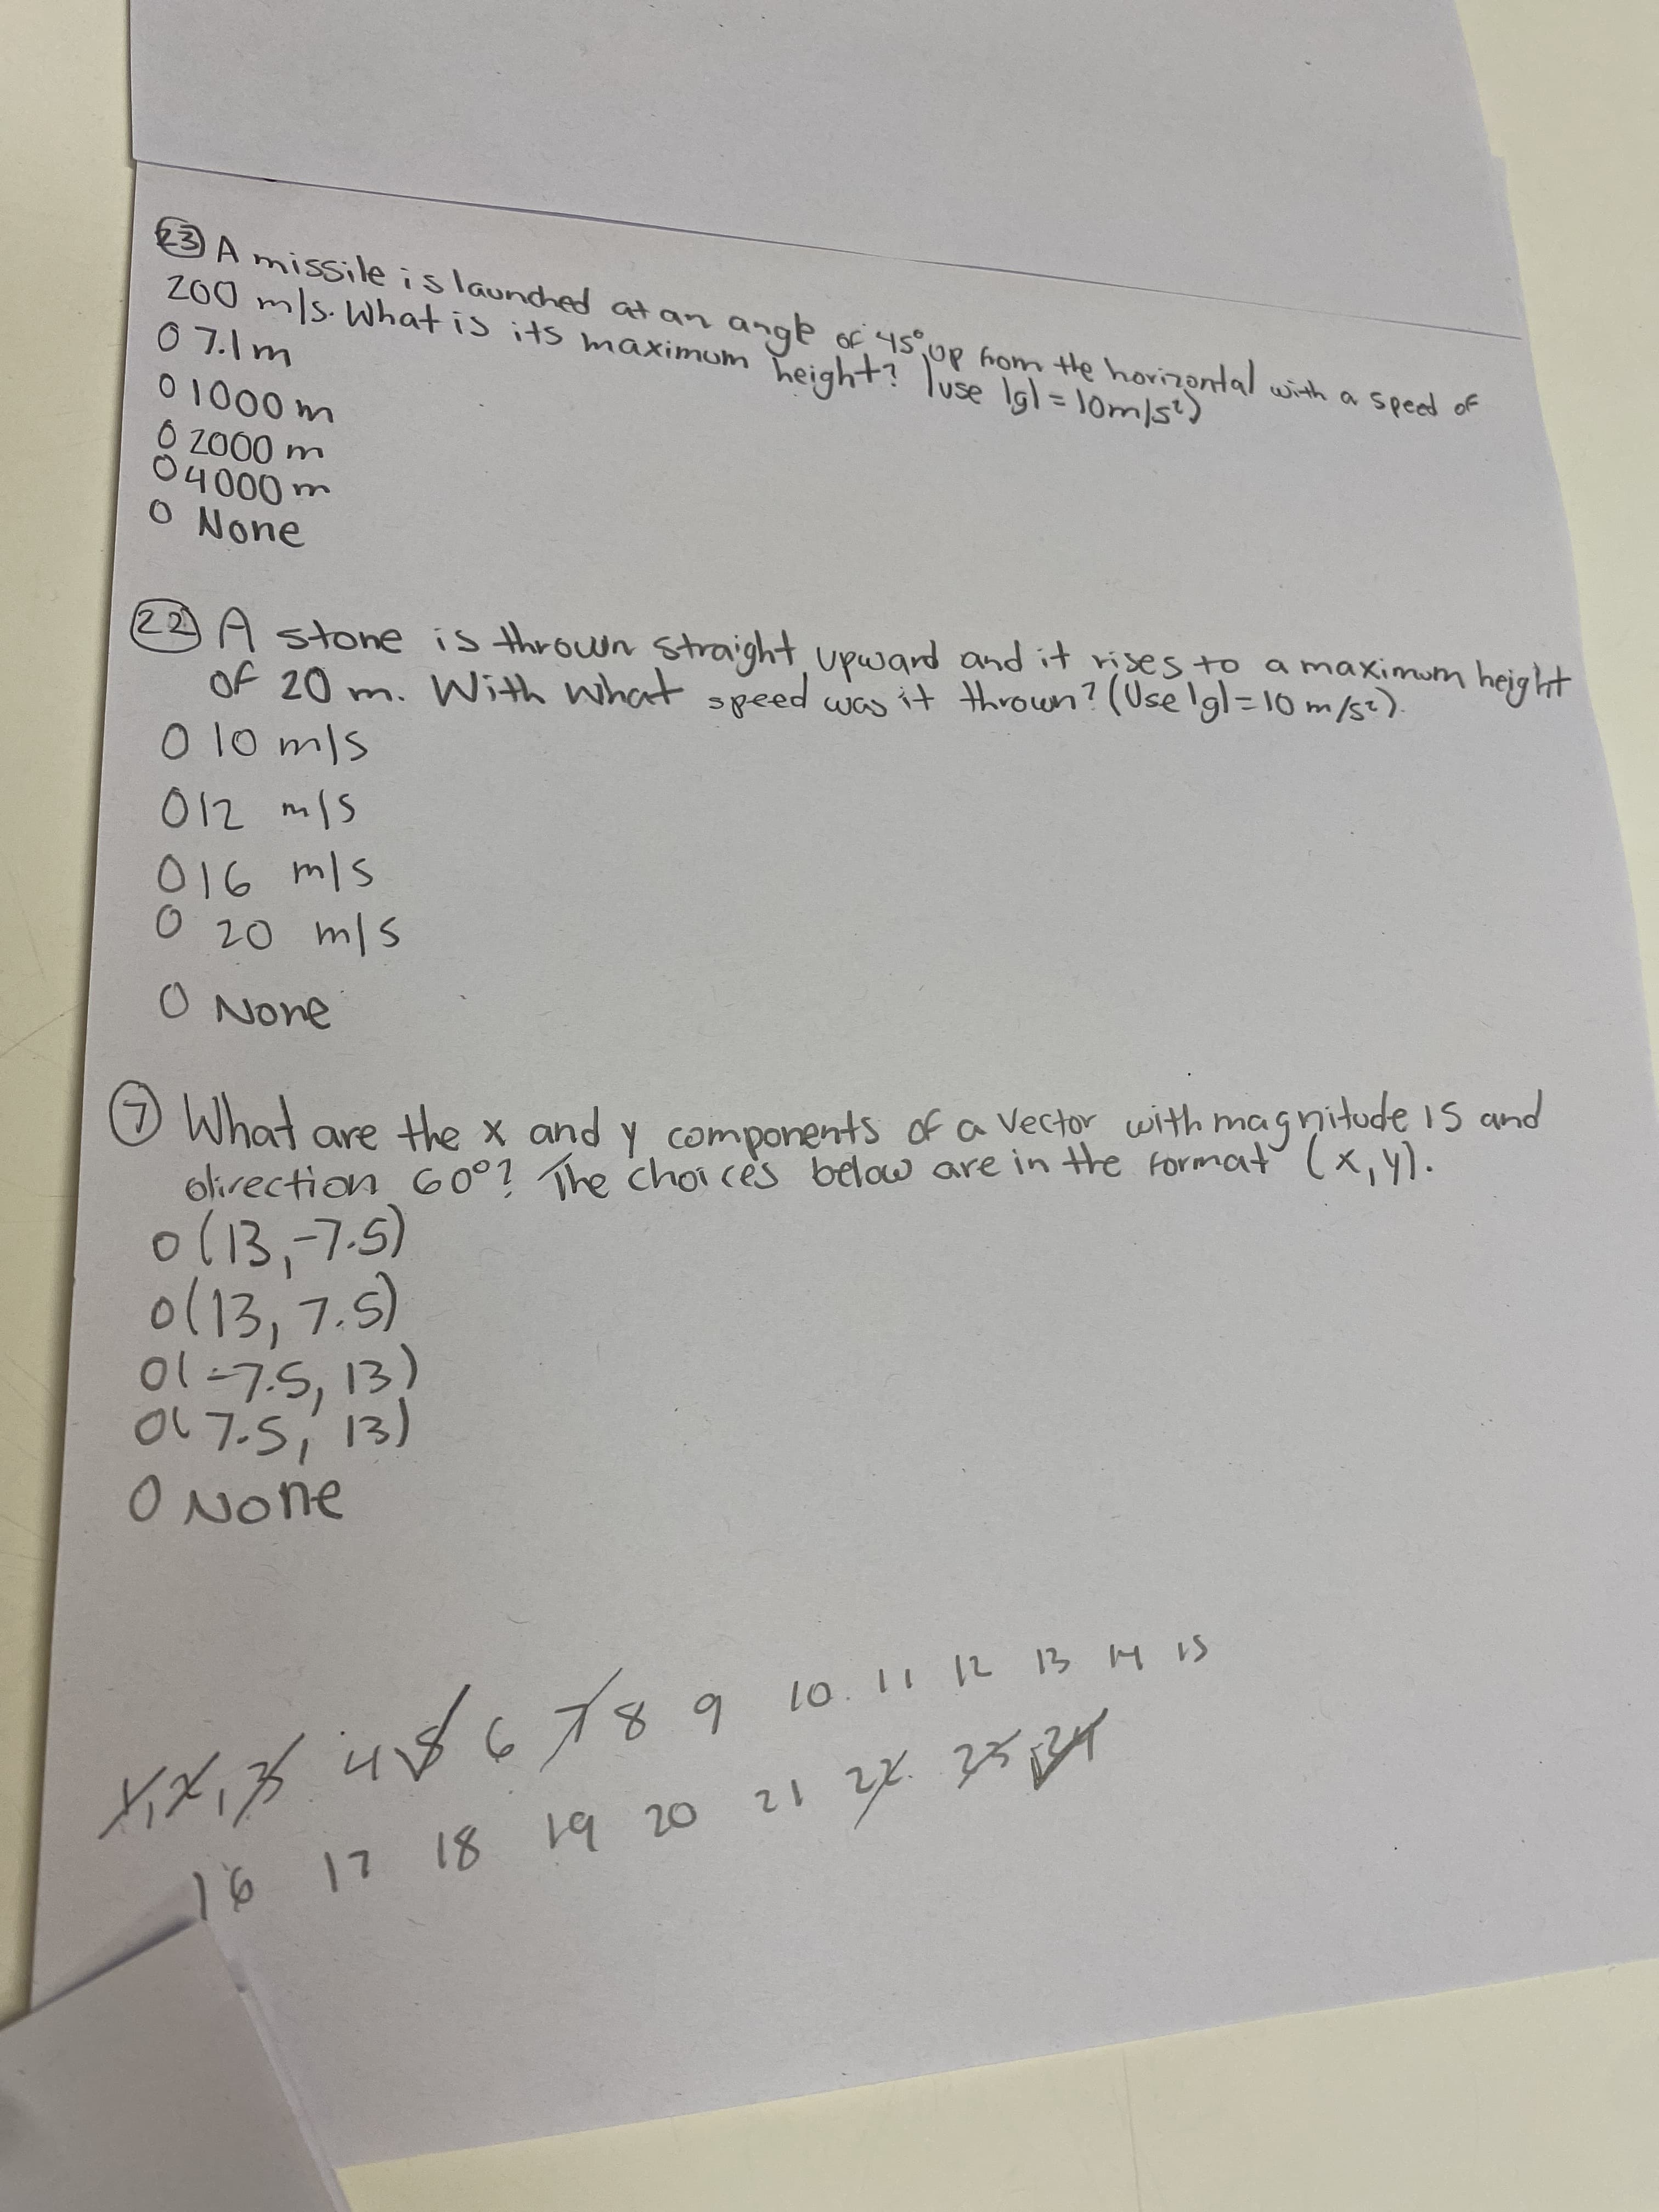 23 A missile is launched at an angle of 45° up from the horizontal with a speed of
200 m/s. What is its maximum height? (use |g| = 10m/s²)
O 7.1m
O 1000m
O 2000m
O 4000m
O None
22 A stone is thrown straight upward and it rises to a maximum height
of 20 m. With what speed was it thrown? (Use |g| = 10 m/s²).
O 10 m/s
O 12 m/s
O 16 m/s
O 20 m/s
O None
7 What are the x and y components of a vector with magnitude 15 and
direction 60°? The choices below are in the format (x, y).
O (13, -7.5)
O (13, 7.5)
O (-7.5, 13)
O (7.5, 13)
O None
1, 2, 3 4 5 6 7 8 9 10 11 12 13 14 15
16 17 18 19 20 21 22 23 24